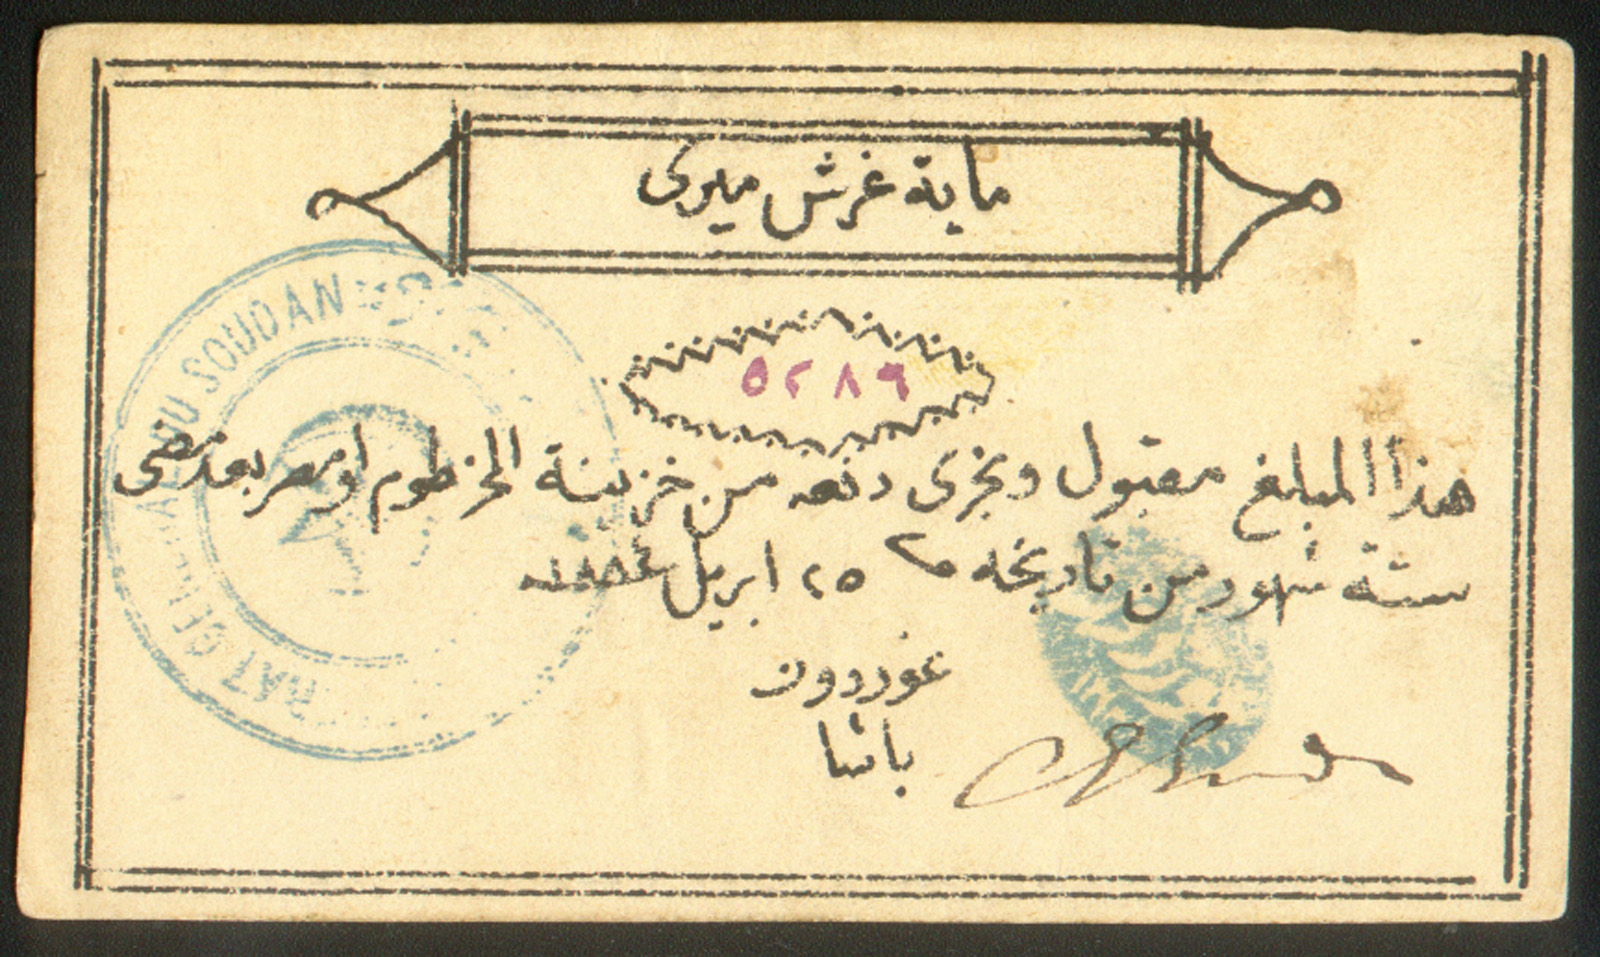 ماية غرش ميرى
٥٢٨٩
هذا المبلغ مقبول ويجرى دفعه من خزينة الخرطوم او مصر بعد مضى
ستة شهور من تاريخه ٢٥ ابريل ١٨٨٤
غوردون
باشا
RAT GENERAL DU SOUDAN